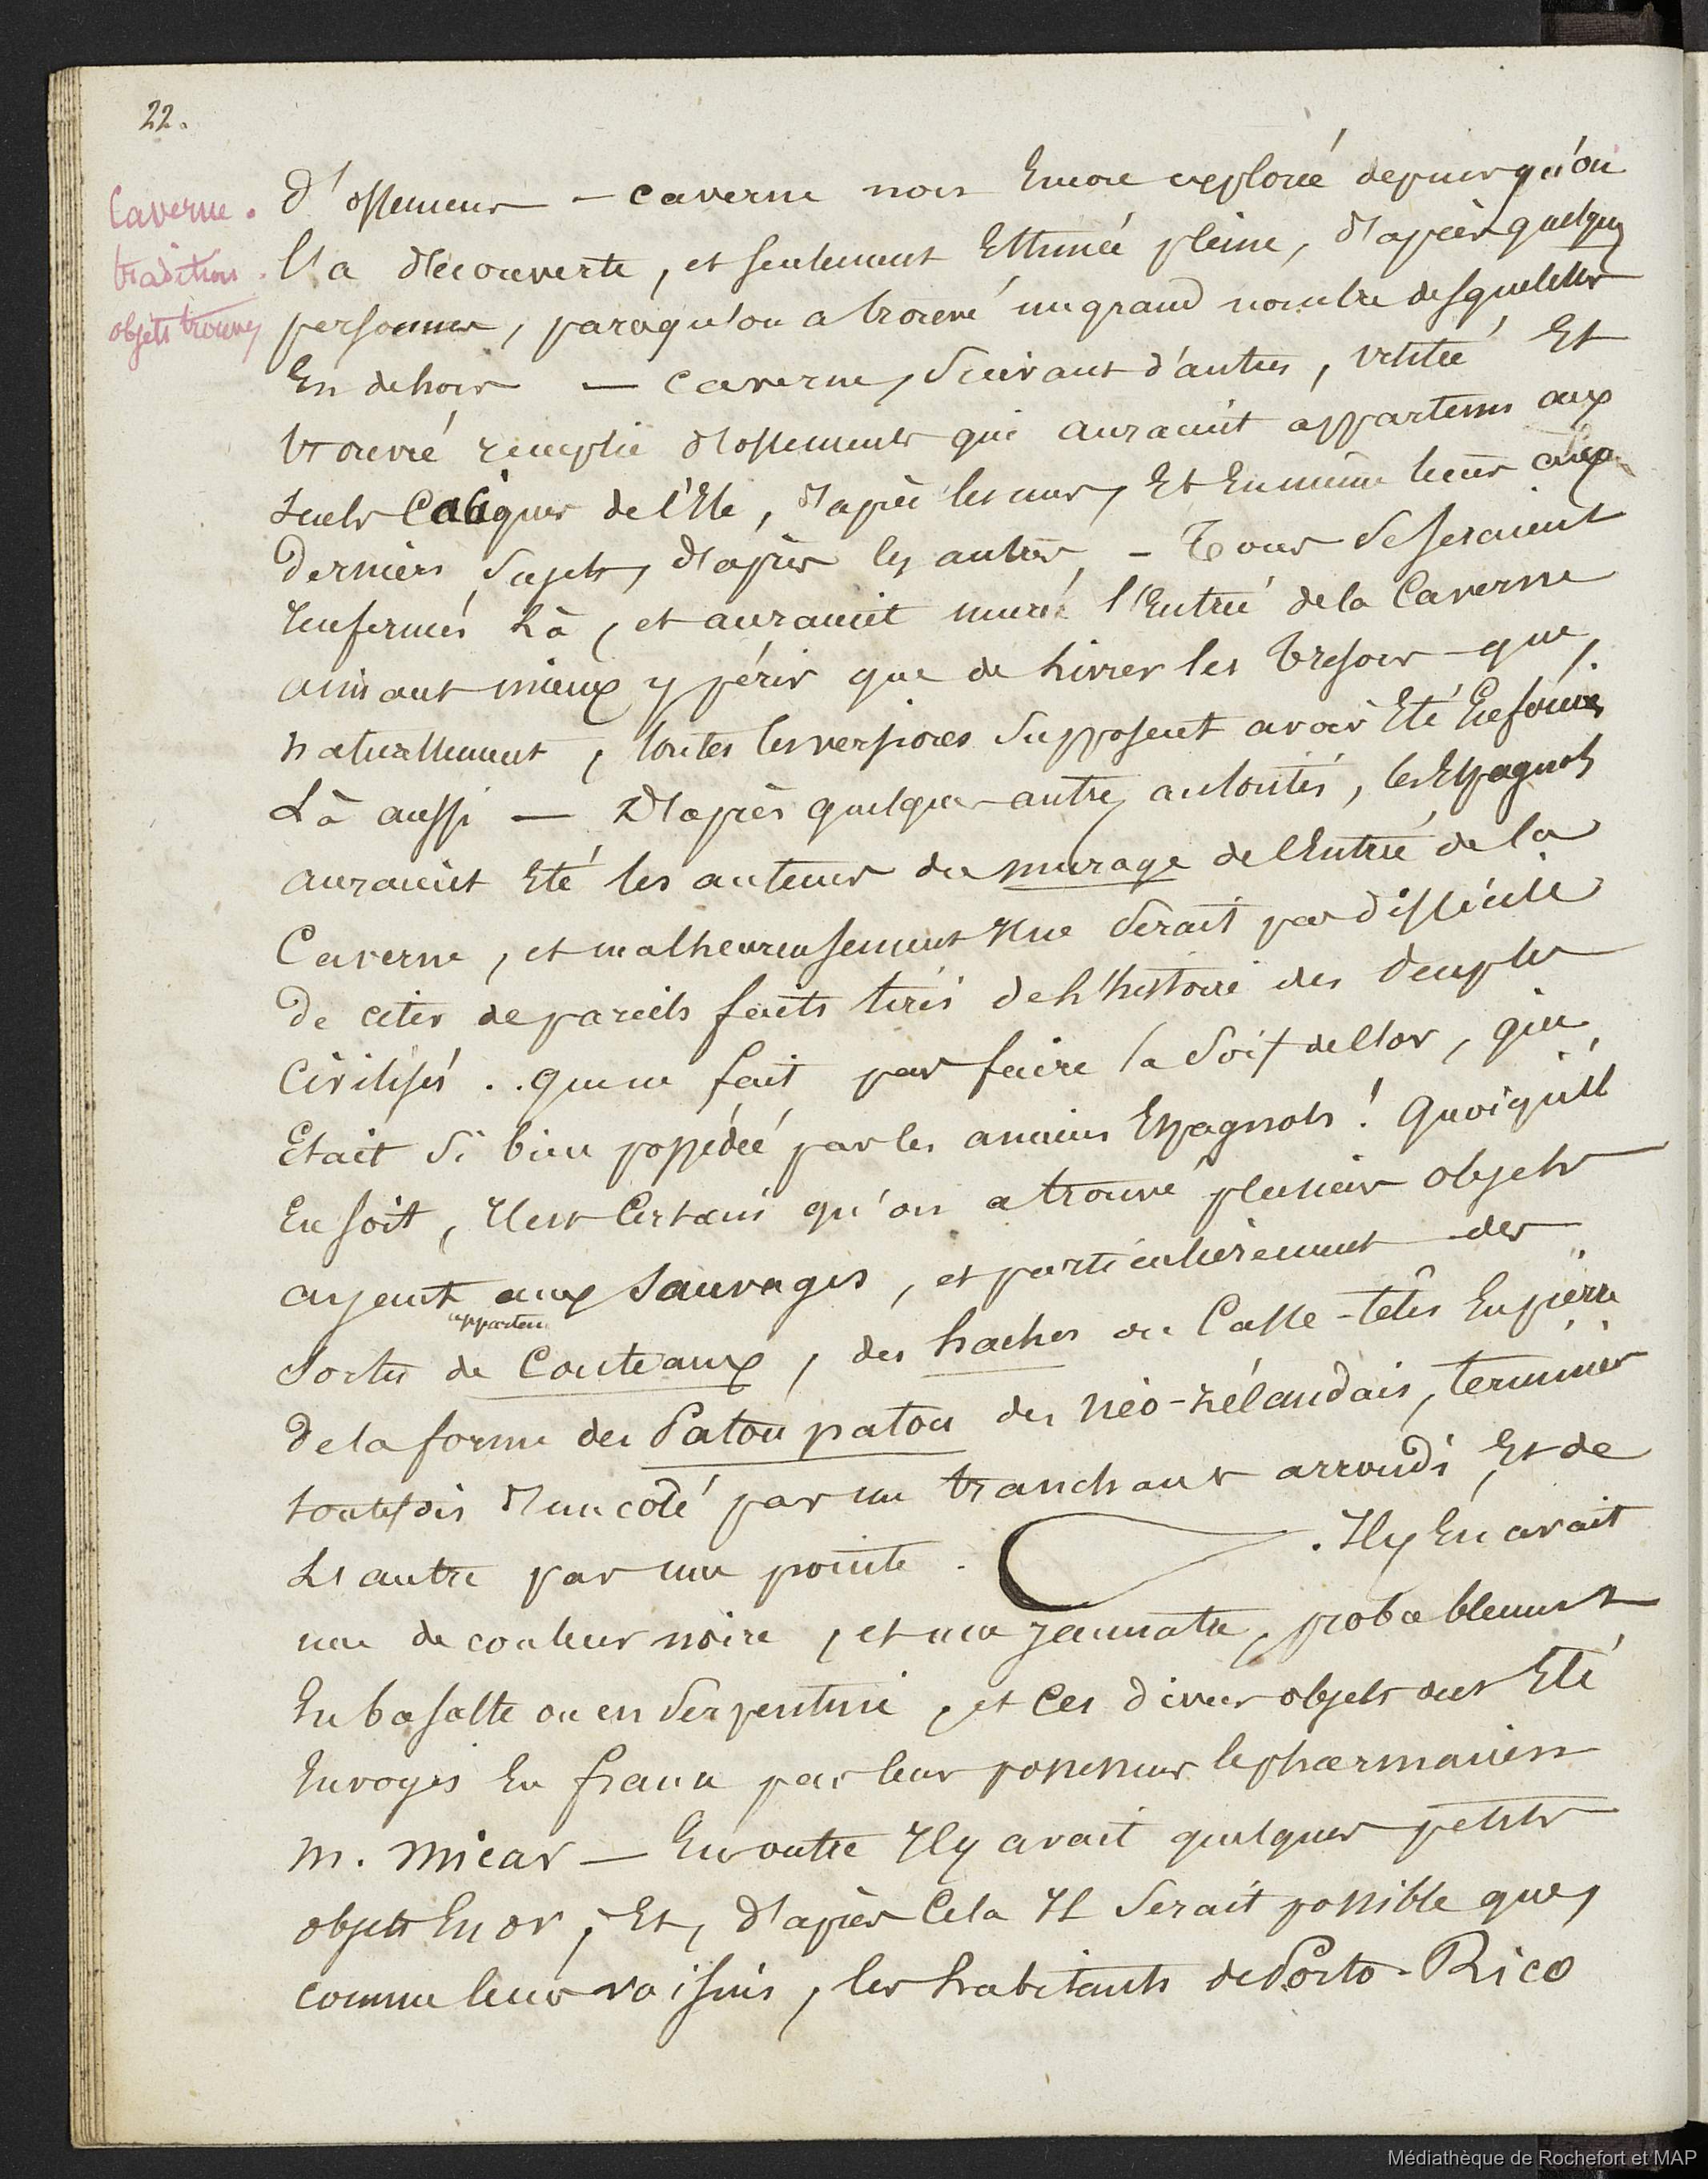 22.
Caverne.
tradition.
objets trouvés
d'ossemens — caverne non Encore explorée depuis qu'on
l'a découverte, et seulement Estimée pleine, d'après quelques
personnes, parcequ'on a trouvé un grand nombre desquelettes
En dehors — caverne, Suivant d'autres, visitée Et
trouvée remplie d'ossements qui auraient appartenu aux
seuls Caciques de l'Ile, d'après les uns, Et En même tems aux
derniers Sujets, d'après les autres, - Tous Se seraient
renfermés Là, et auraient muré l'Entrée de la Caverne
aimant mieux y périr que de Livrer les tresors que,
naturellement, toutes les versions Supposent avoir Eté Enfouies
Là aussi — D'après quelques autres autorités, les Espagnols
auraient Eté les auteurs du murage de l'Entrée de la
Caverne, et malheureusement Il ne Serait pas difficile
de citer de pareils faits tirés de L'histoire des Peuples
Civilisés .. que ne fait pas faire la Soif de l'or, qui
Etait Si bien possédée par les anciens Espagnols! Quoiqu'il
En soit, Il est Certain qu'on a trouvé plusieurs objets
ayant aux Sauvages, et particulièrement des
appartenu
Sortes de Couteaux, des haches ou Casse-têtes En pierre
de la forme des Patou patou des Néo-zélandais, terminés
toutefois d'un coté par un tranchant arrondi Et de
L'autre par une pointe . . Il y En avait
une de couleur noire, et une jaunatre, probablement
En basalte ou en Serpentine, et Ces divers objets ont Eté
Envoyés En france par leur possesseur le pharmacien
M. Micar — En outre Il y avait quelques petits
objets En or, Et, d'après Cela Il Serait possible que,
comme leurs voisins, les habitants de Porto-Rico
Médiathèque de Rochefort et MAP